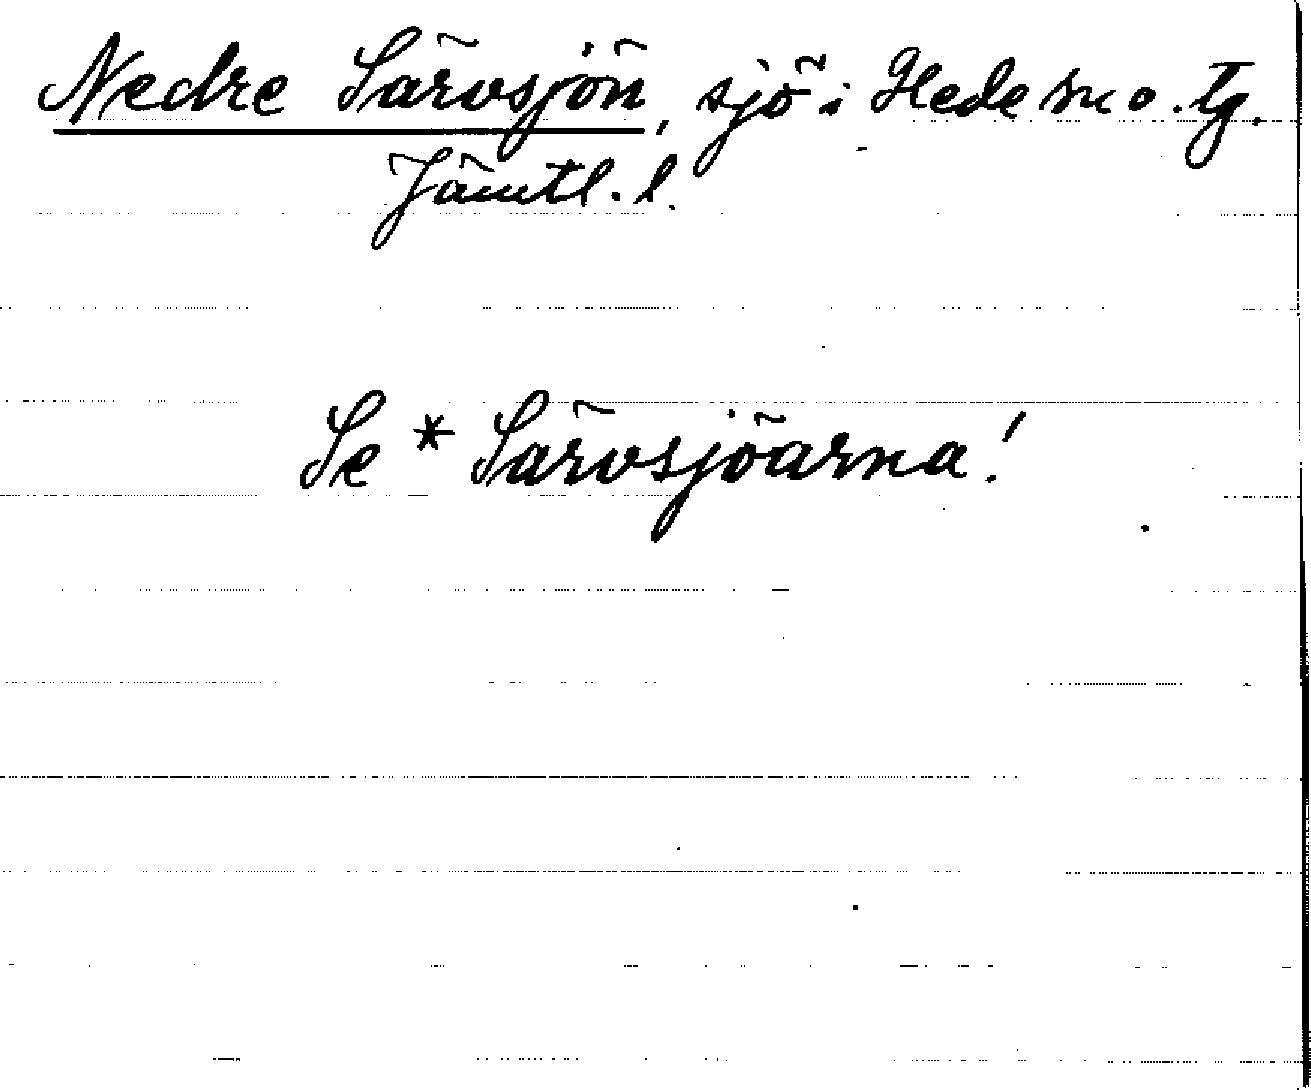 Nedre Särvsjön, sjö i Hede sn o. tg.
Jämtl. l.
Se * Särvsjöarna!